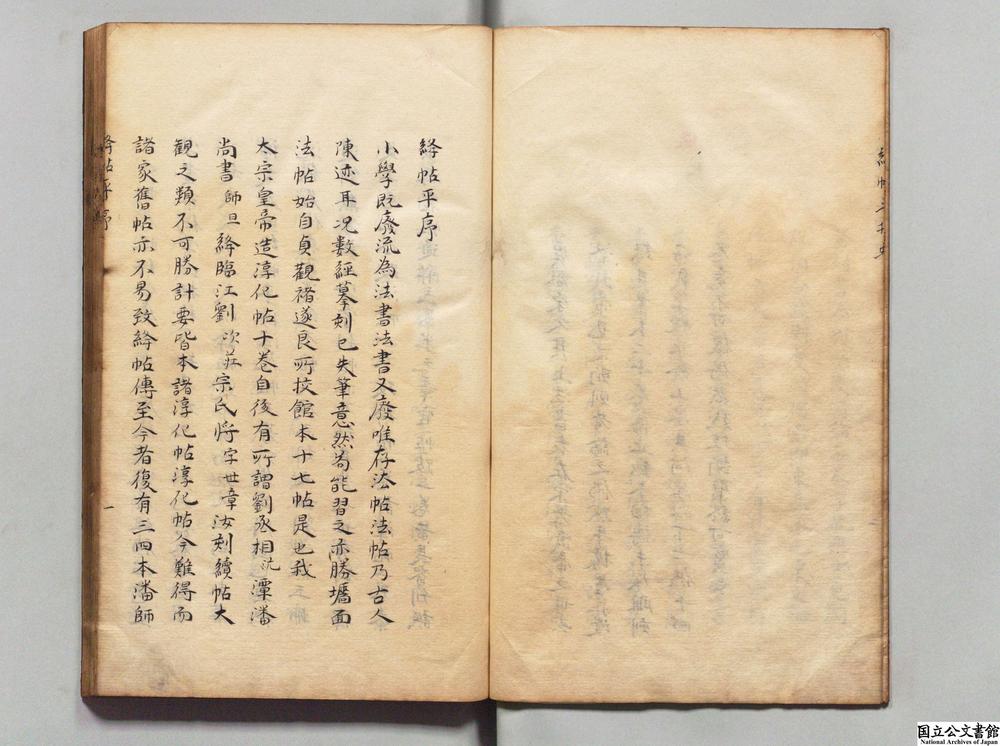 絳帖平序
小學既廢流為法書法書又廢唯存法帖法帖乃古人
陳迹耳況數經摹刻已失筆意然苟能習之亦勝墻面
法帖始自貞觀褚遂良所挍館本十七帖是也我
太宗皇帝造淳化帖十卷自後有所謂劉丞相沆潭潘
尚書師旦絳臨江劉次莊宗氏將字世章汝刻續帖大
觀之類不可勝計要皆本諸淳化帖淳化帖今難得而
諸家舊帖亦不易致絳帖傳至今者復有三四本潘師
絳帖平序
一
国立公文書館
National Archives of Japan